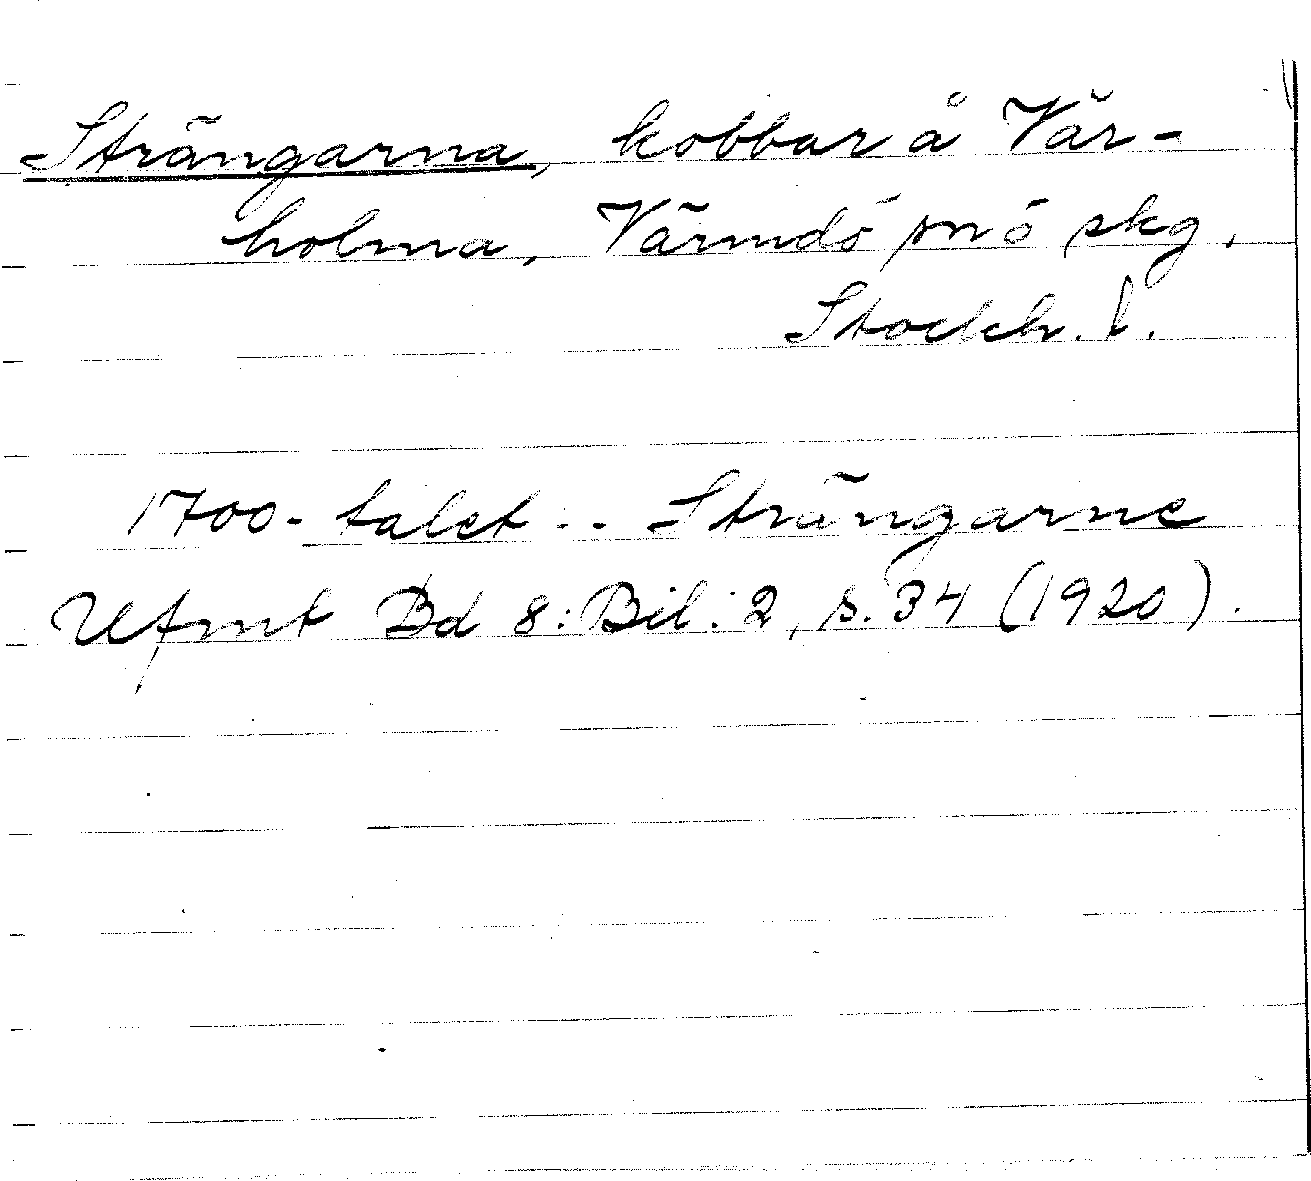 Strängarna, kobbar å Vär-
holma, Värmdö snö skg,
Stockh. l.
1700-talet .. Strängarne
Ufmt Bd 8: Bil: 2, s. 34 (1920).